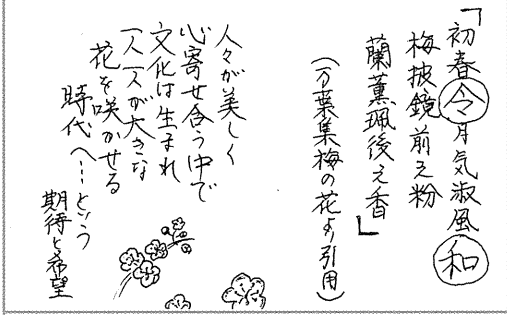 「初春令月気淑風和
梅披鏡前之粉
蘭薫珮後之香」
(万葉集梅の花より引用)
人々が美しく
心寄せ合う中で
文化は生まれ
一人一人が大きな
花を咲かせる
時代へ…という
期待と希望